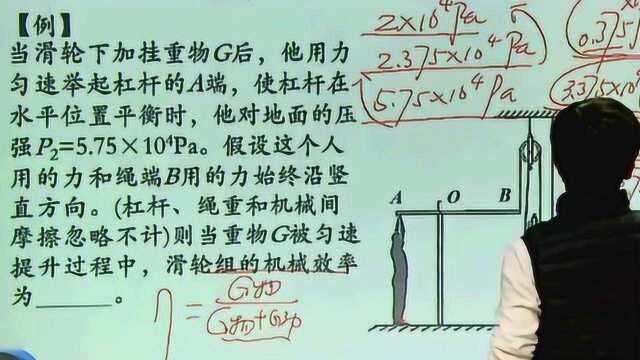 【例】
当滑轮下加挂重物G后，他用力
匀速举起杠杆的A端，使杠杆在
水平位置平衡时，他对地面的压
强P₂=5.75×10⁴Pa。假设这个人
用的力和绳端B用的力始终沿竖
直方向。(杠杆、绳重和机械间
摩擦忽略不计)则当重物G被匀速
提升过程中，滑轮组的机械效率
为______。
η = G物 / G物+G动
2×10⁴Pa
2.375×10⁴Pa
5.75×10⁴Pa
0.375
3.375×10
A O B